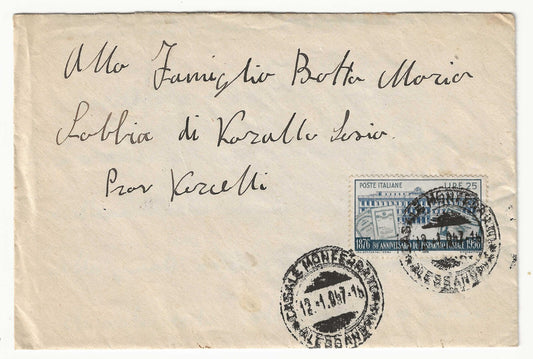 Alla Famiglia Botta Maria
Sabbia di Varallo Sesia.
Prov Vercelli
POSTE ITALIANE LIRE 25
1876 80° ANNIVERSARIO DEL RISPARMIO POSTALE 1956
CASALE MONFERRATO
12-1.57-16
ALESSANDRIA
CASALE MONFERRATO
12-1.57-16
ALESSANDRIA